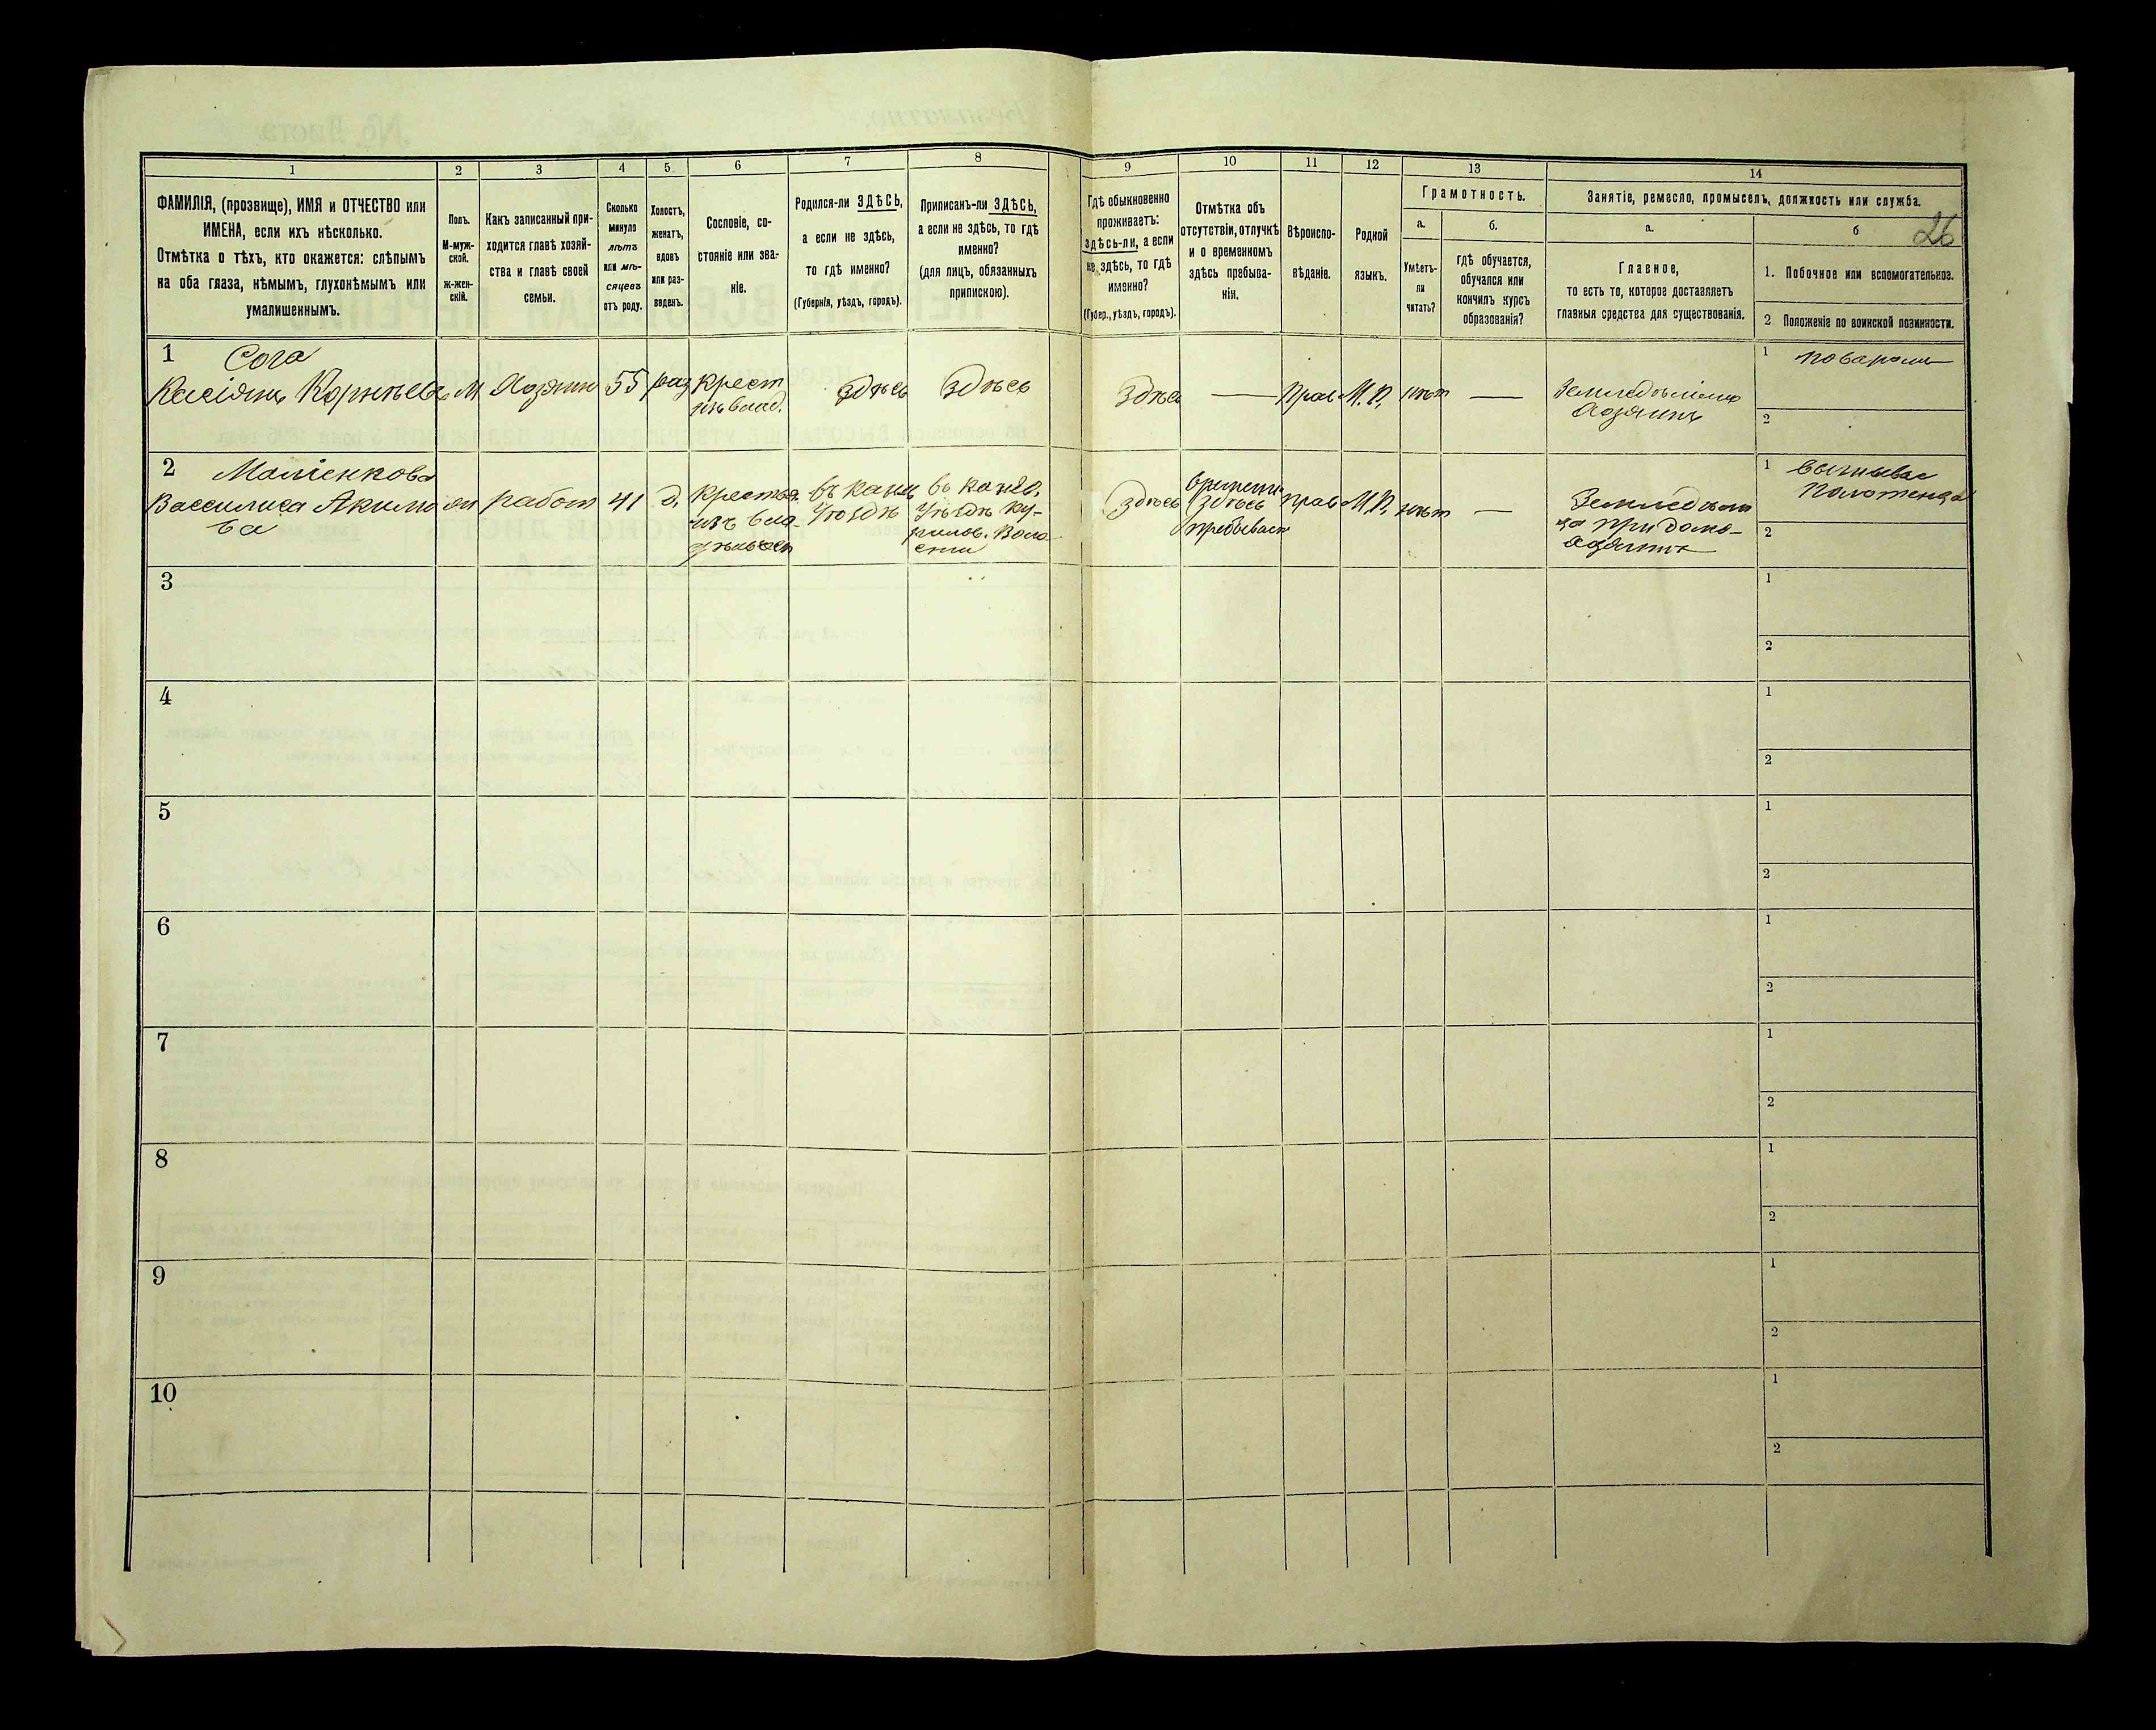 1
2
3
4
5
6
7
8
ФАМИЛІЯ, (прозвище), ИМЯ и ОТЧЕСТВО или
ИМЕНА, если ихъ нѣсколько.
Отмѣтка о тѣхъ, кто окажется: слѣпымъ
на оба глаза, нѣмымъ, глухонѣмымъ или
умалишеннымъ.
Полъ.
М-муж-
ской.
ж-жен-
скій.
Какъ записанный при-
ходится главѣ хозяй-
ства и главѣ своей
семьи.
Сколько
минуло
лѣтъ
или мѣ-
сяцевъ
отъ роду.
Холостъ,
женатъ,
вдовъ
или раз-
веденъ.
Сословіе, со-
стояніе или зва-
ніе.
Родился-ли ЗДѢСЬ,
а если не здѣсь,
то гдѣ именно?
(Губернія, уѣздъ, городъ).
Приписанъ-ли ЗДѢСЬ,
а если не здѣсь, то гдѣ
именно?
(для лицъ, обязанныхъ
припискою).
9
10
11
12
13
14
Гдѣ обыкновенно
проживаетъ:
здѣсь-ли, а если
не здѣсь, то гдѣ
именно?
(Губер., уѣздъ, городъ).
Отмѣтка объ
отсутствіи, отлучкѣ
и о временномъ
здѣсь пребыва-
ніи.
Вѣроиспо-
вѣданіе.
Родной
языкъ.
Грамотность.
а.
б.
Умѣетъ-
ли
читать?
гдѣ обучается,
обучался или
кончилъ курсъ
образованія?
Занятіе, ремесло, промыселъ, должность или служба.
а.
б
26
Главное,
то есть то, которое доставляетъ
главныя средства для существованія.
1. Побочное или вспомогательное.
2 Положеніе по воинской повинности.
1
Сога
Касіянъ Корнѣевъ
М
Хозяин
55
Крест
здѣсь
здѣсь
здѣсь
—
Прав
М.Р.
нѣт
—
Хозяинъ
1
2
2
Василиса Акимо
ва
работ
41
д.
изъ
уѣздѣ
уѣздѣ
здѣсь
времени
здѣсь
пребывает
прав
М.Р.
нѣт
—
1
2
3
1
2
4
1
2
5
1
2
6
1
2
7
1
2
8
1
2
9
1
2
10
1
2